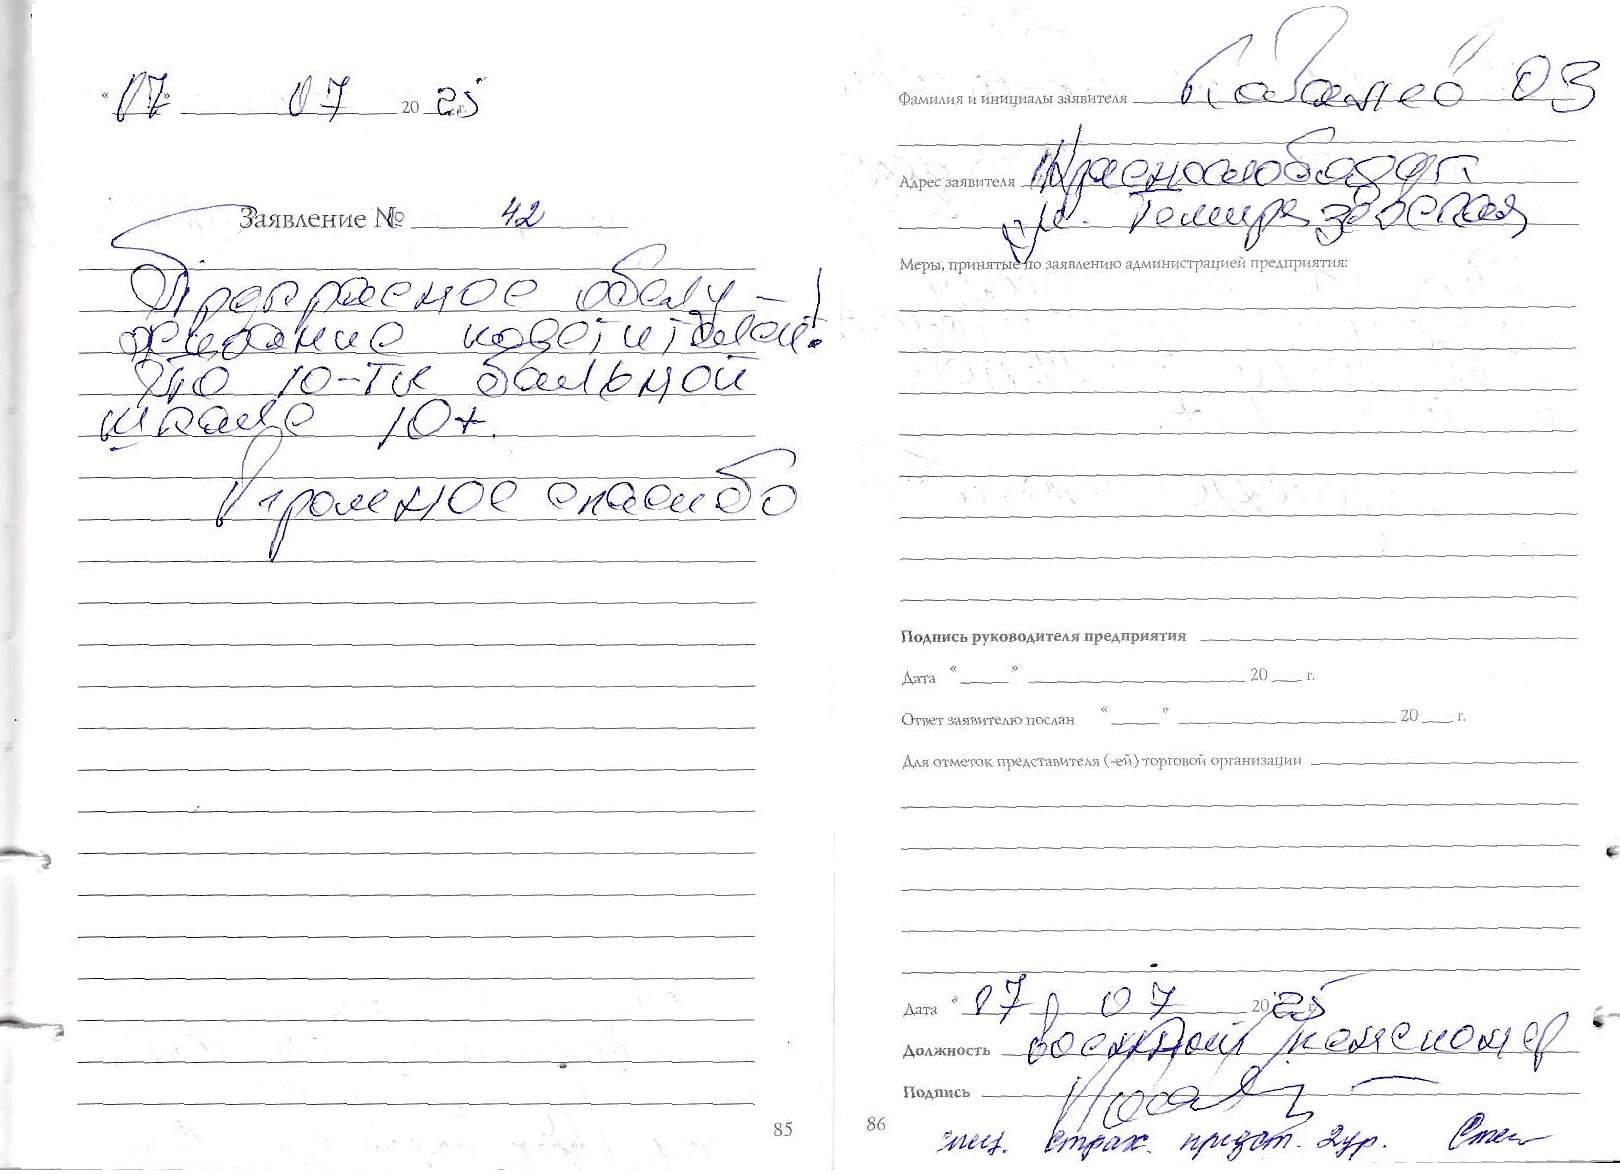 « 07 » 07 20 25 г.
Заявление № 42
Прекрасное обслу-
живание посетителей!
По 10-ти бальной
шкале 10+.
Огромное спасибо
85
Фамилия и инициалы заявителя
Адрес заявителя Краснослободск
ул. Тимирязевская
Меры, принятые по заявлению администрацией предприятия:
Подпись руководителя предприятия
Дата « » 20 г.
Ответ заявителю послан « » 20 г.
Для отметок представителя (-ей) торговой организации
Дата « 07 07 20 25 г.
Должность военный пенсионер
Подпись
86
спец. страх. 2ур.